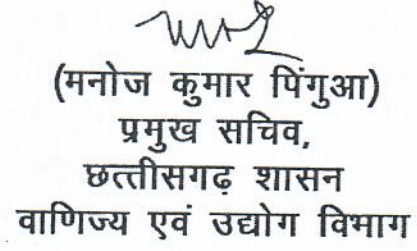 (मनोज कुमार पिंगुआ)
प्रमुख सचिव,
छत्तीसगढ़ शासन
वाणिज्य एवं उद्योग विभाग